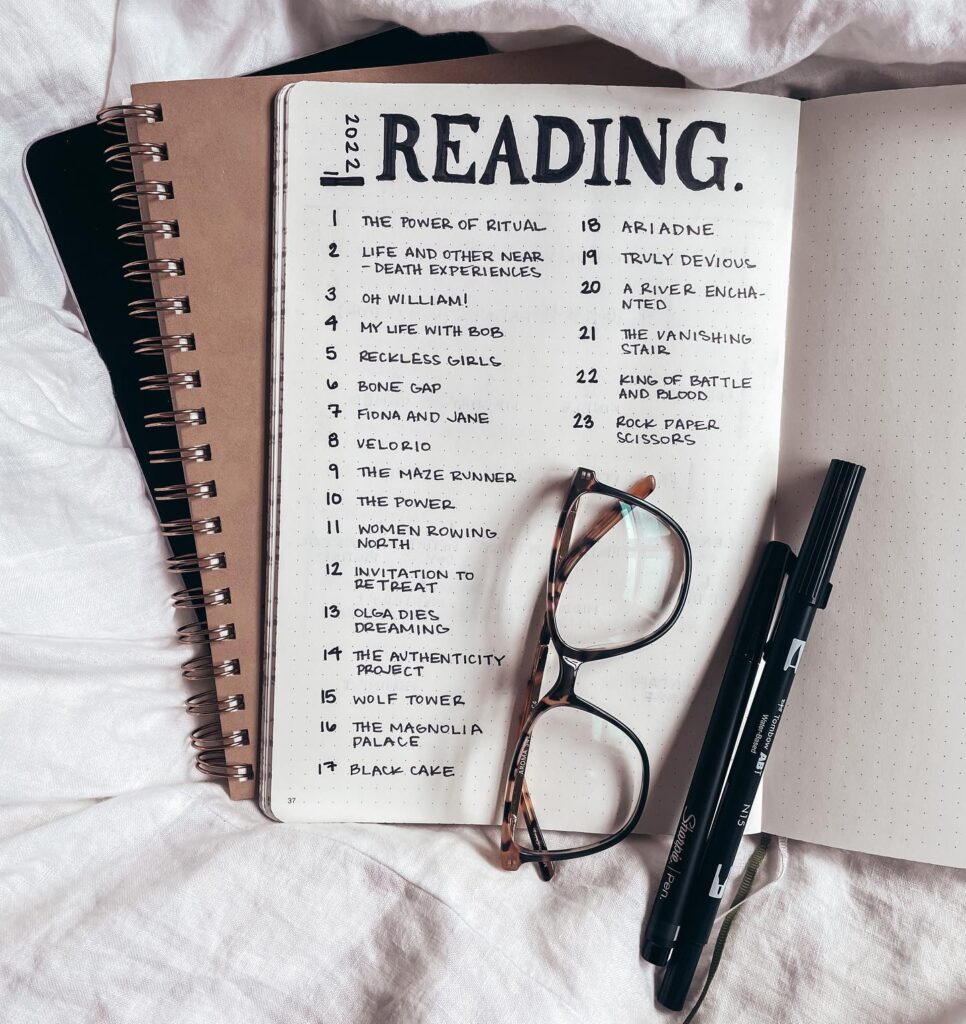 2022
READING.
1 THE POWER OF RITUAL
2 LIFE AND OTHER NEAR
-DEATH EXPERIENCES
3 OH WILLIAM!
4 MY LIFE WITH BOB
5 RECKLESS GIRLS
6 BONE GAP
7 FIONA AND JANE
8 VELORIO
9 THE MAZE RUNNER
10 THE POWER
11 WOMEN ROWING
NORTH
12 INVITATION TO
RETREAT
13 OLGA DIES
DREAMING
14 THE AUTHENTICITY
PROJECT
15 WOLF TOWER
16 THE MAGNOLIA
PALACE
17 BLACK CAKE
18 ARIADNE
19 TRULY DEVIOUS
20 A RIVER ENCHA-
NTED
21 THE VANISHING
STAIR
22 KING OF BATTLE
AND BLOOD
23 ROCK PAPER
SCISSORS
37
Sharpie. Pen.
Tombow ABT
Water-Based
N15